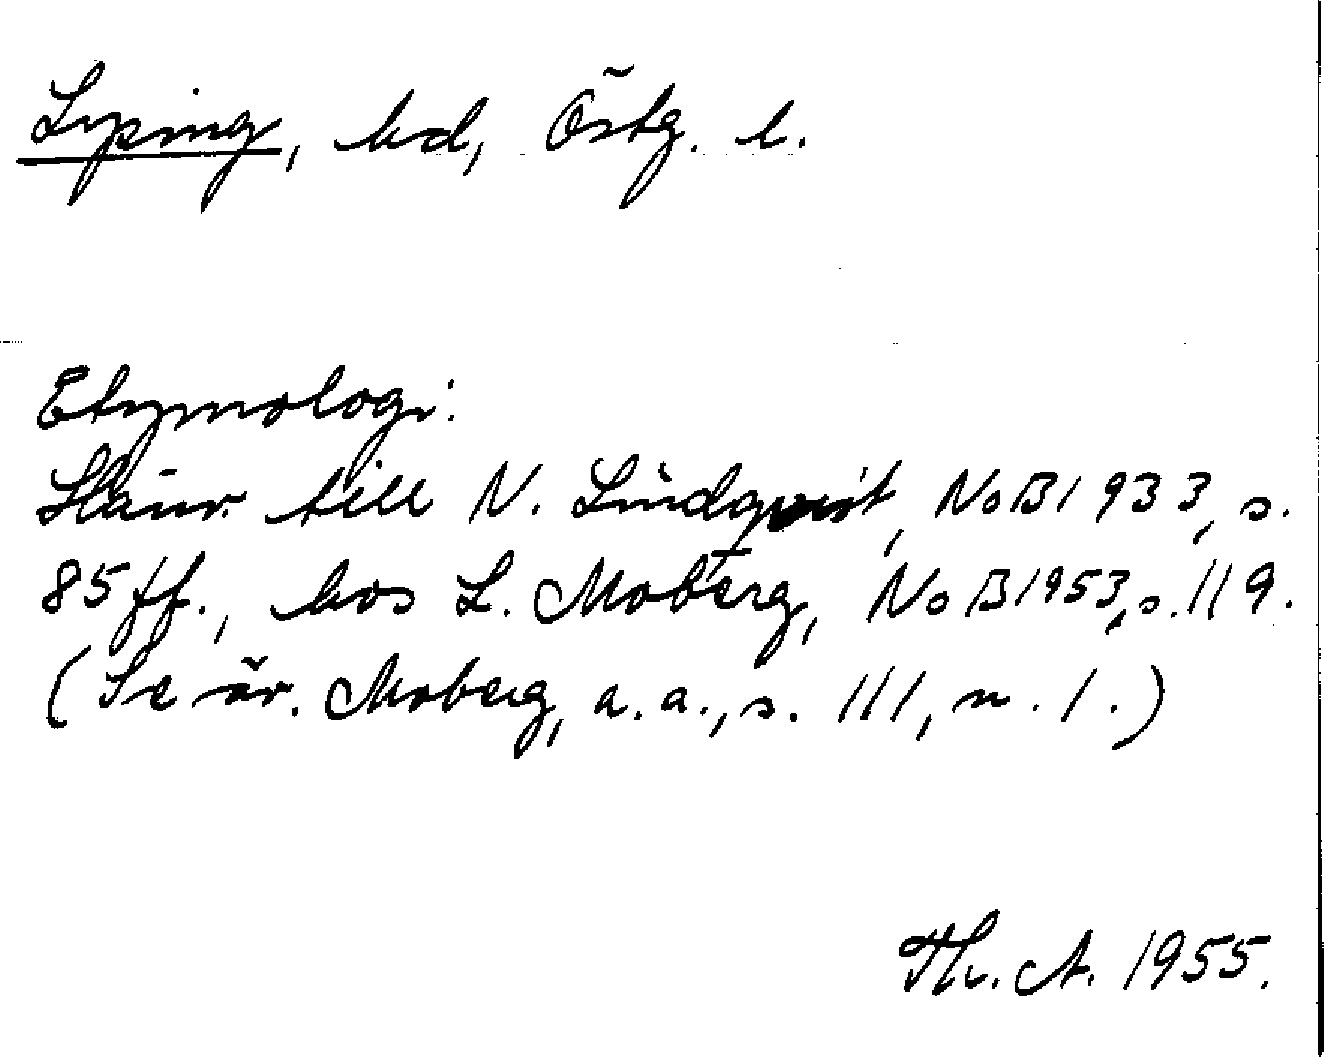 Lysing, hd, Östg. l.
Etymologi:
Hänv. till N. Lindqvist, NoB 1933, s.
85 ff., hos L. Moberg, NoB 1953, s. 119.
(Se äv. Moberg, a.a., s. 111, n. 1.)
Th. A. 1955.